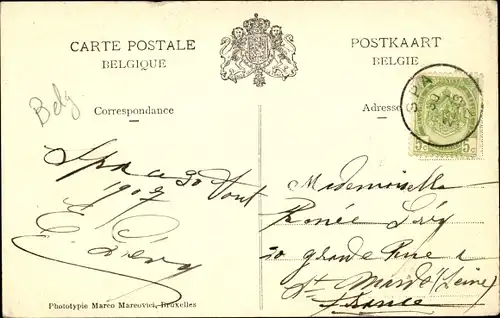 CARTE POSTALE
BELGIQUE
POSTKAART
BELGIE
Belg
Correspondance
Adresse
SPA
5c 5c
Spa ce 30 Aout
1907
E. Lévy
Mademoiselle
Renée Lévy
20 grande Rue
St Mandé (Seine)
France
Phototypie Marco Marcovici, Bruxelles